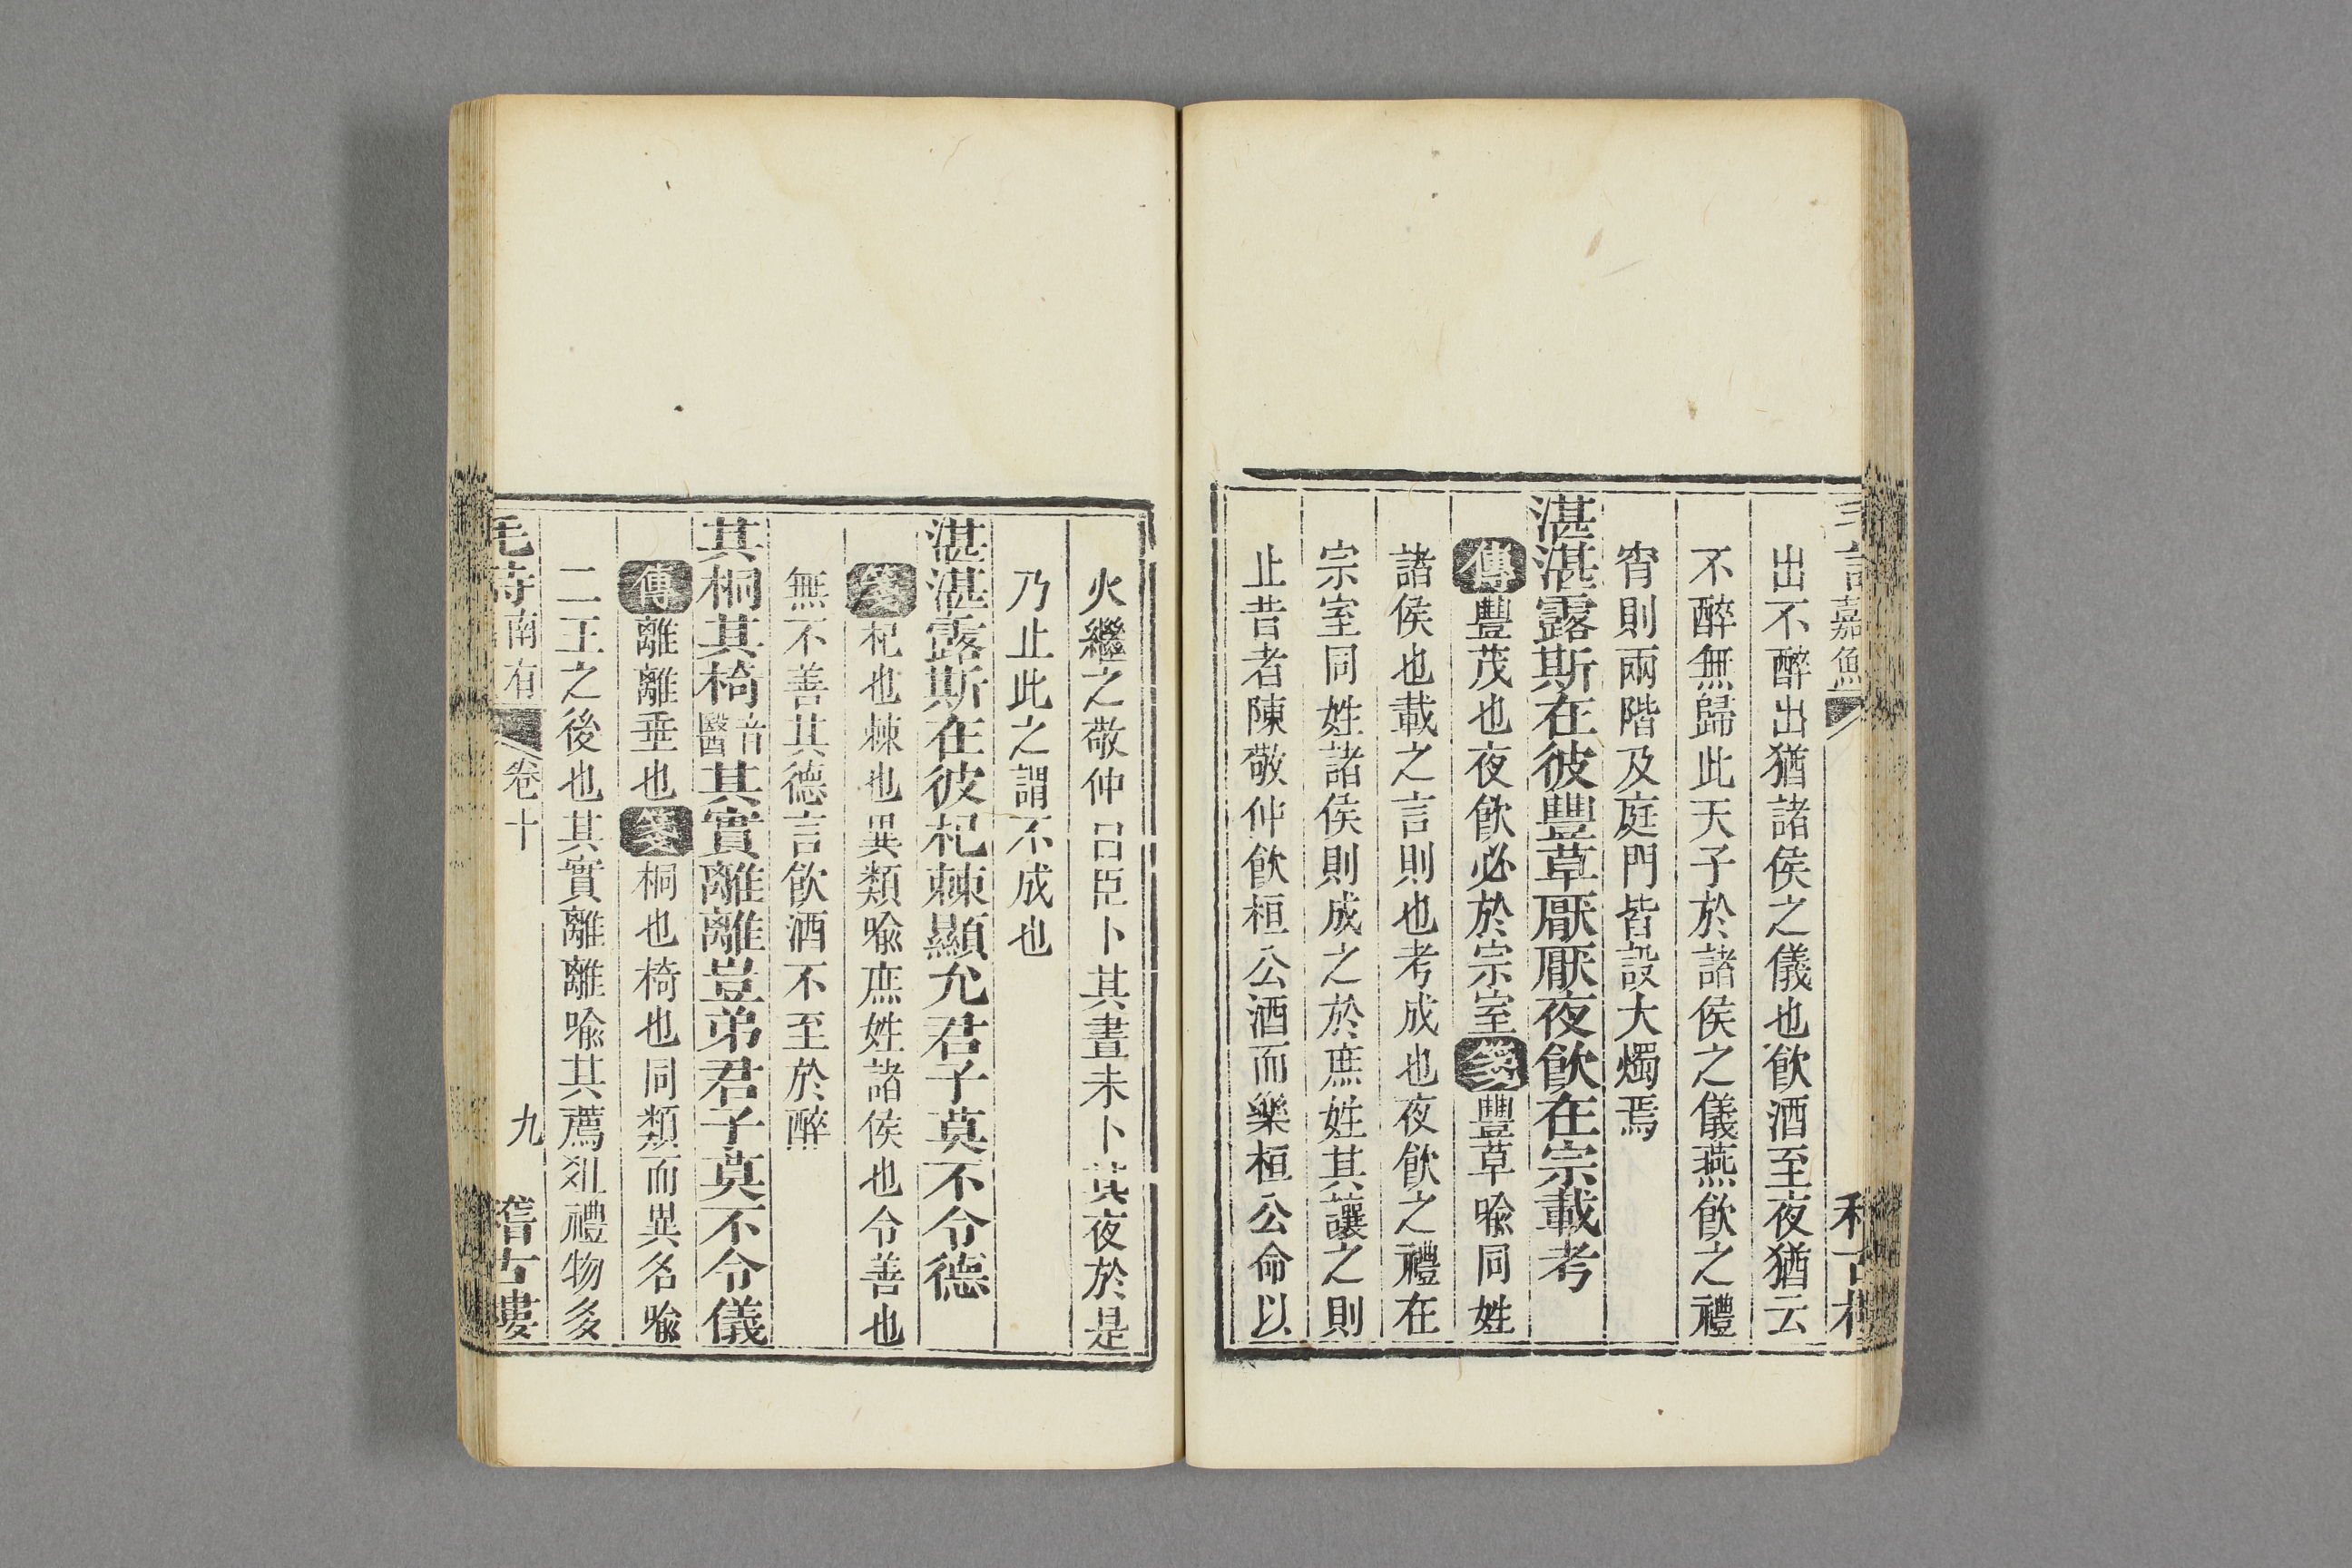 嘉魚
出不醉出猶諸侯之儀也飮酒至夜猶云
不醉無歸此天子於諸侯之儀燕飮之禮
宵則兩階及庭門皆設大燭焉
湛湛露斯在彼豐草厭厭夜飮在宗載考
傳豐茂也夜飮必於宗室箋豐草喩同姓
諸侯也載之言則也考成也夜飮之禮在
宗室同姓諸侯則成之於庶姓其讓之則
止昔者陳敬仲飮桓公酒而樂桓公命以
火繼之敬仲曰臣卜其晝未卜其夜於是
乃止此之謂不成也
湛湛露斯在彼杞棘顯允君子莫不令德
箋杞也棘也異類喩庶姓諸侯也令善也
無不善其德言飮酒不至於醉
其桐其椅音醫其實離離豈弟君子莫不令儀
傳離離垂也箋桐也椅也同類而異名喩
二王之後也其實離離喩其薦俎禮物多
毛詩南有 卷十 九 稽古樓